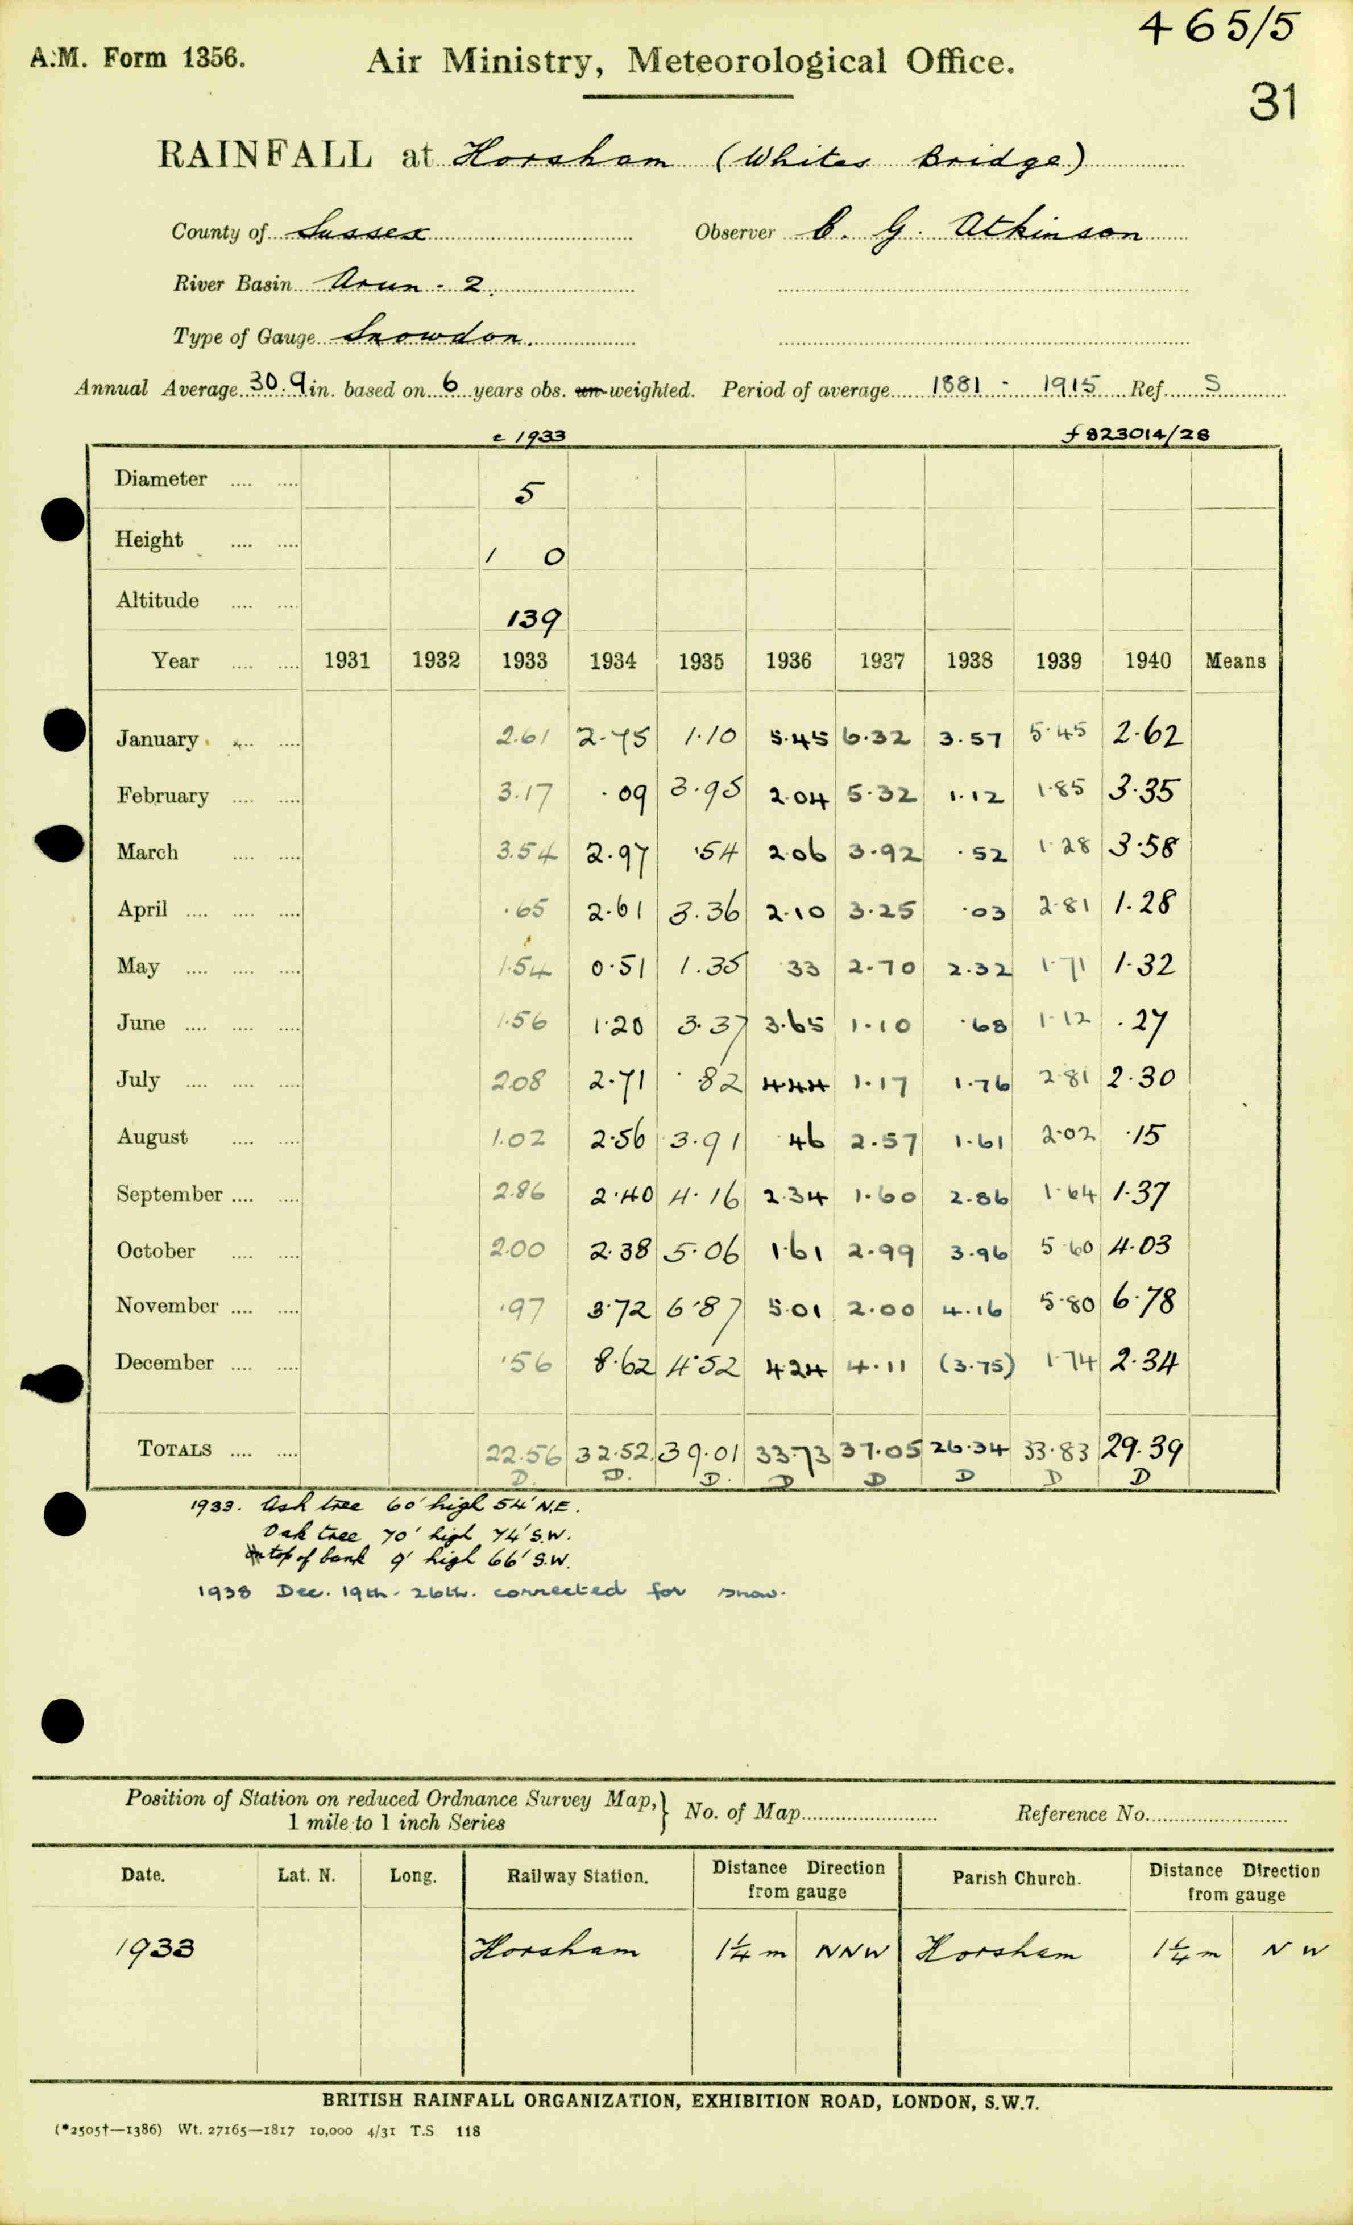 465/5
A.M. Form 1356. Air Ministry, Meteorological Office.
31
RAINFALL at Horsham (Whites Bridge)
County of Sussex Observer C. G. Atkinson
River Basin Arun - 2.
Type of Gauge Snowdon.
Annual Average 30.9 in. based on 6 years obs. un-weighted. Period of average 1881 - 1915 Ref. S
c 1933 f 823014/28
Diameter .... .... 5
Height .... .... 1 0
Altitude .... .... 139
Year .... .... 1931 1932 1933 1934 1935 1936 1937 1938 1939 1940 Means
January .... .... 2.61 2.75 1.10 5.45 6.32 3.57 5.45 2.62
February .... .... 3.17 .09 3.95 2.04 5.32 1.12 1.85 3.35
March .... .... 3.54 2.97 .54 2.06 3.92 .52 1.28 3.58
April .... .... .... .65 2.61 3.36 2.10 3.25 .03 2.81 1.28
May .... .... .... 1.54 0.51 1.35 33 2.70 2.32 1.71 1.32
June .... .... .... 1.56 1.20 3.37 3.65 1.10 .68 1.12 .27
July .... .... .... 2.08 2.71 .82 4.44 1.17 1.76 2.81 2.30
August .... .... 1.02 2.56 3.91 .46 2.57 1.61 2.02 .15
September .... .... 2.86 2.40 4.16 2.34 1.60 2.86 1.64 1.37
October .... .... 2.00 2.38 5.06 1.61 2.99 3.96 5.60 4.03
November .... .... .97 3.72 6.87 5.01 2.00 4.16 5.80 6.78
December .... .... .56 8.62 4.52 4.24 4.11 (3.75) 1.74 2.34
TOTALS .... .... 22.56 32.52 39.01 33.73 37.05 26.34 33.83 29.39
D. D. D. D D D D D
1933. Ash tree 60' high 54' N.E.
Oak tree 70' high 74' S.W.
On top of bank 9' high 66' S.W.
1938 Dec. 19th - 26th. corrected for snow.
Position of Station on reduced Ordnance Survey Map, } No. of Map Reference No.
1 mile to 1 inch Series
Date. Lat. N. Long. Railway Station. Distance Direction from gauge Parish Church. Distance Direction from gauge
1933 Horsham 1¼ m NNW Horsham 1¼ m NW
BRITISH RAINFALL ORGANIZATION, EXHIBITION ROAD, LONDON, S.W.7.
(*2505†—1386) Wt. 27165—1817 10,000 4/31 T.S 118